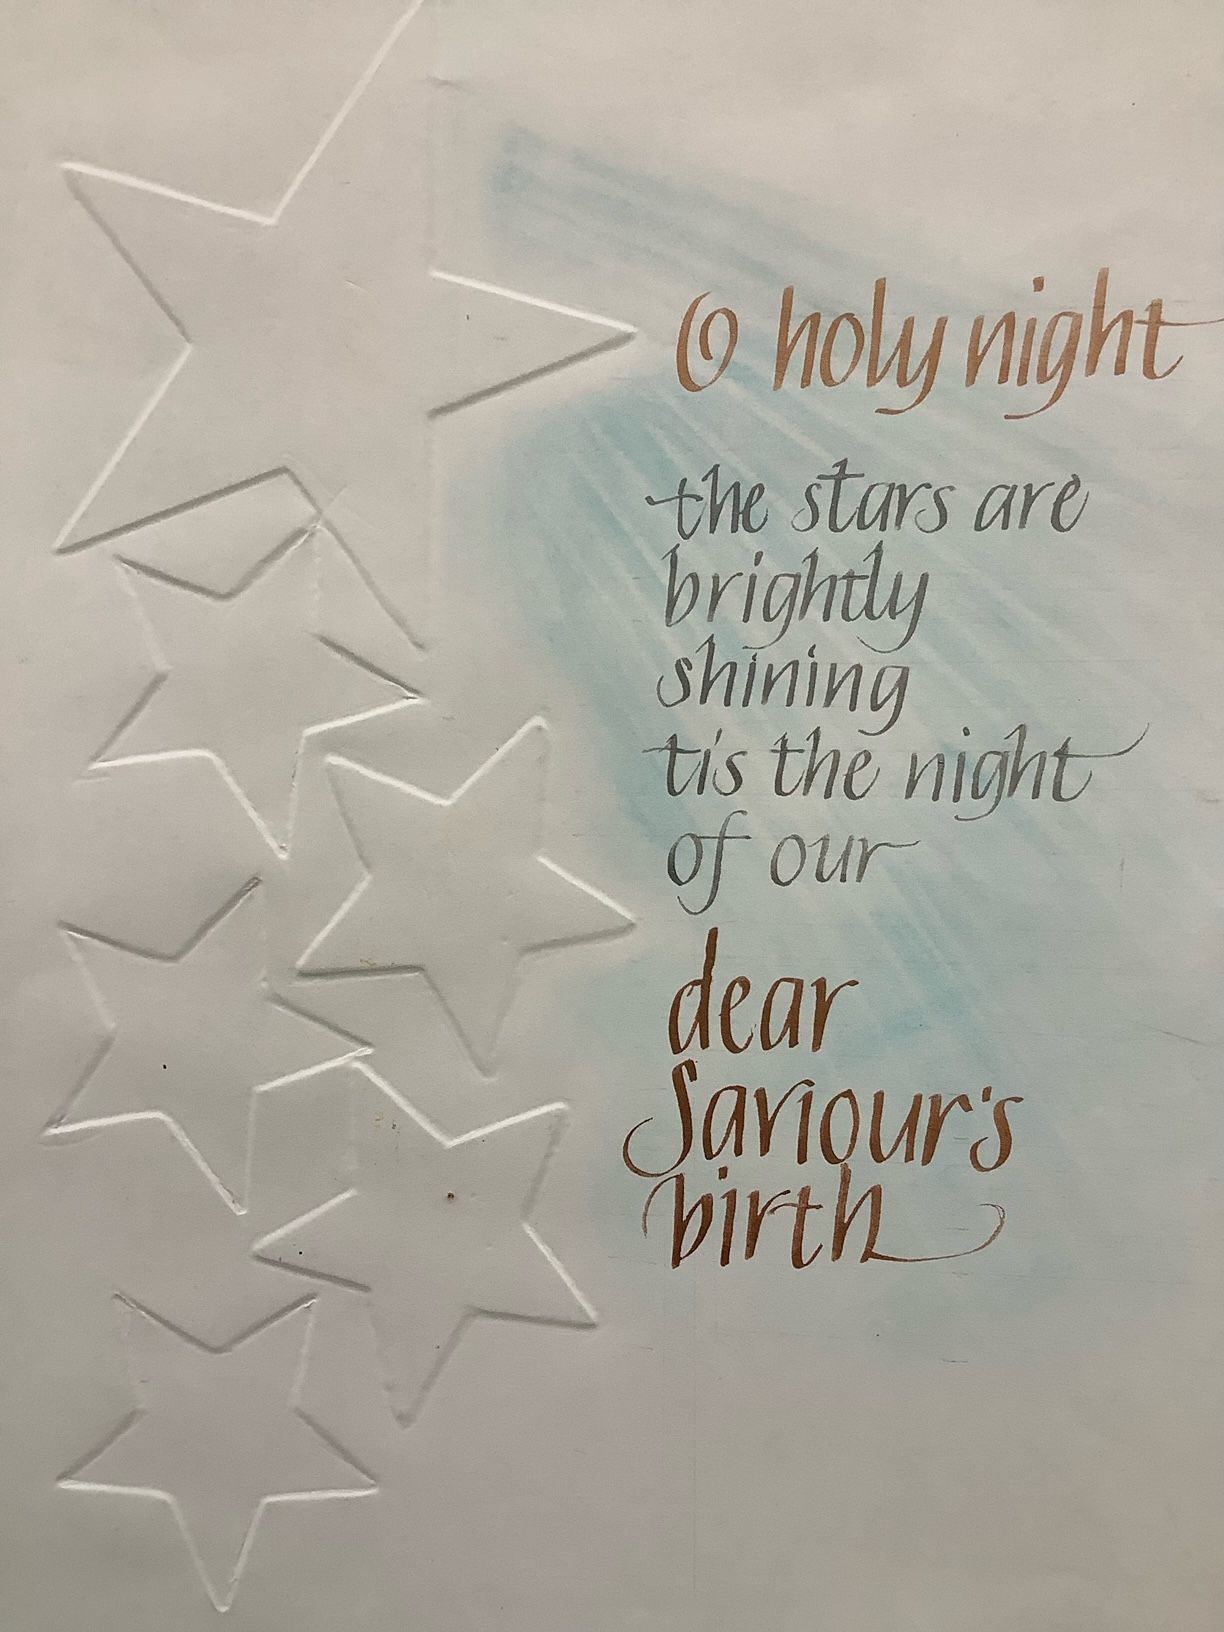 O holy night
the stars are
brightly
shining
tis the night
of our
dear
Saviour's
birth